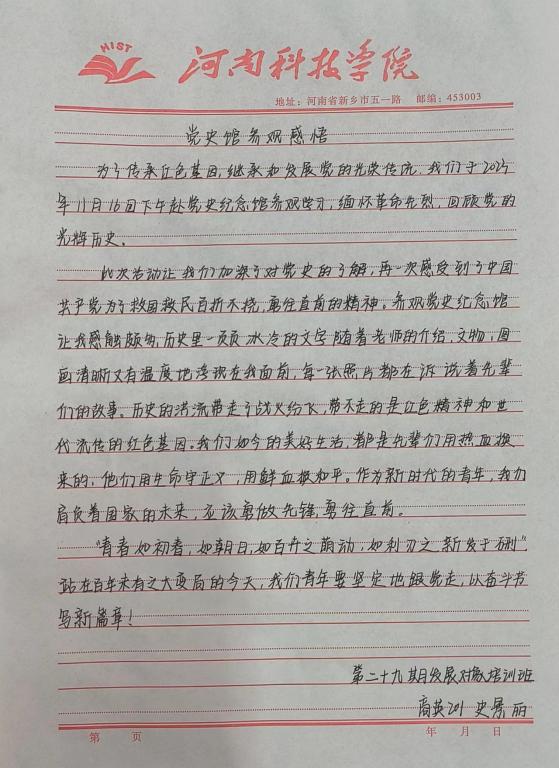 HIST
河南科技学院
地址：河南省新乡市五一路 邮编：453003
党史馆参观感悟
为了传承红色基因，继承和发展党的光荣传统，我们于2023
年11月16日下午赴党史纪念馆参观学习，缅怀革命先烈，回顾党的
光辉历史。
此次活动让我们加深了对党史的了解，再一次感受到了中国
共产党为了救国救民百折不挠，勇往直前的精神。参观党史纪念馆
让我感触颇多，历史里一页页冰冷的文字随着老师的介绍，文物，图
画清晰又有温度地浮现在我面前，每一张照片都在诉说着先辈
们的故事。历史的洪流带走了战火纷飞，带不走的是红色精神和世
代流传的红色基因。我们如今的美好生活，都是先辈们用热血换
来的，他们用生命守正义，用鲜血换和平。作为新时代的青年，我们
肩负着国家的未来，应该勇做先锋，勇往直前。
“青春如初春，如朝日，如百卉之萌动，如利刃之新发于硎”
站在百年未有之大变局的今天，我们青年要坚定地跟党走，以奋斗书
写新篇章！
第二十九期发展对象培训班
商英201 史景丽
第 页 年 月 日